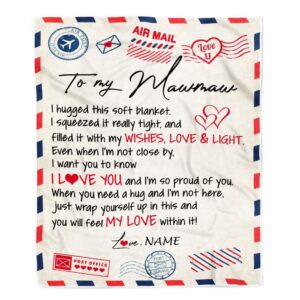 AIR MAIL
Love U
To my Mawmaw
I hugged this soft blanket.
I squeezed it really tight, and
filled it with my WISHES, LOVE & LIGHT.
Even when I'm not close by,
I want you to know
I L❤VE YOU and I'm so proud of you.
When you need a hug and I'm not here,
just wrap yourself up in this and
you will feel MY LOVE within it!
Love, NAME
POST OFFICE